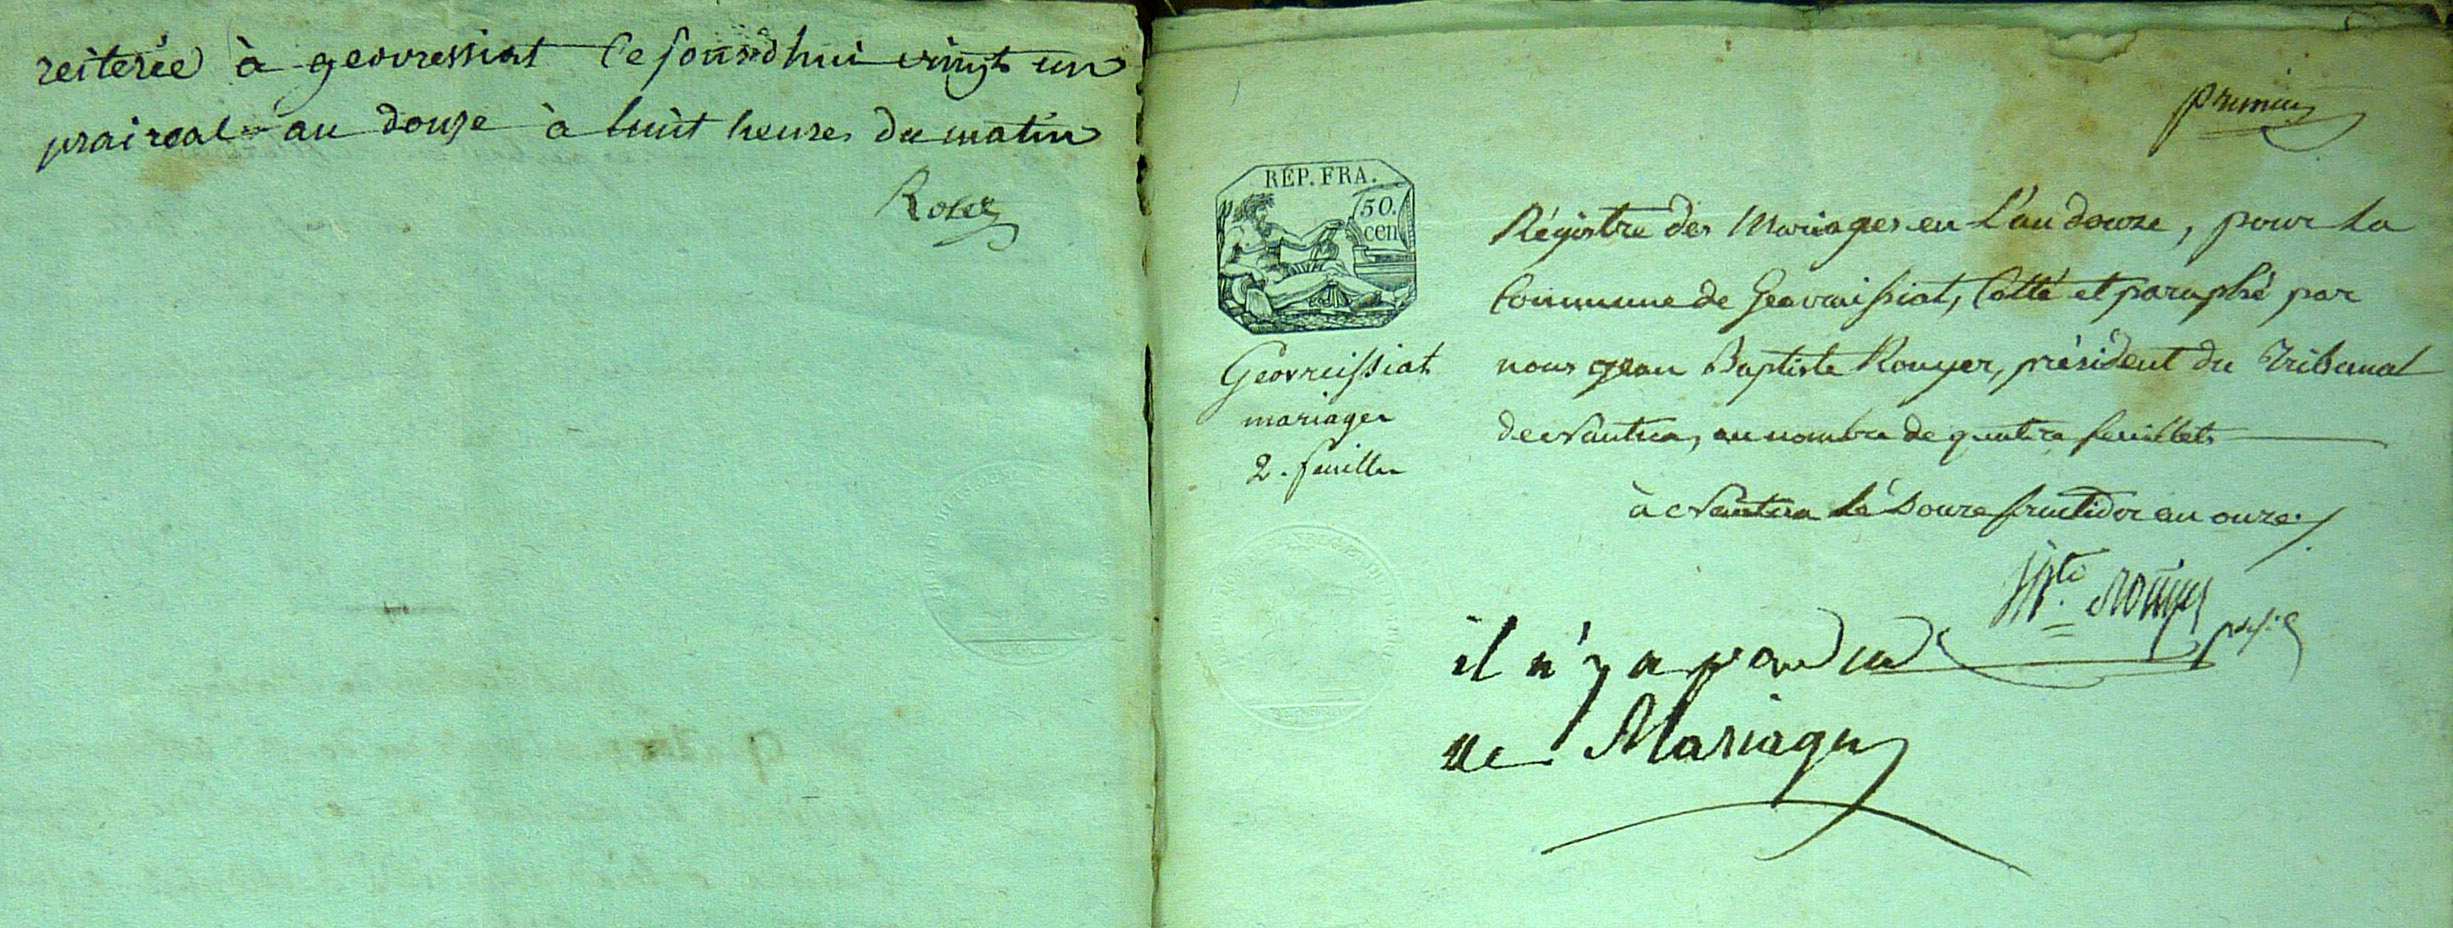 reiterée à geovressiat Ce Jourdhui vingt un
praireal an douze à huit heures du matin
Rosez
premier
REP. FRA.
50.
cen
Geovreissiat
mariages
2. feuilles
Régistre des Mariages en L'an douze, pour La
Commune de Geovraissiat, Cotté et paraphé par
nous Jean Baptiste Rouyer, président du Tribunal
de Nantua, au nombre de quatre feuillets
à Nantua le douze fructidor an onze
Bte. Rouyer
il n'y a pas eu
de Mariages